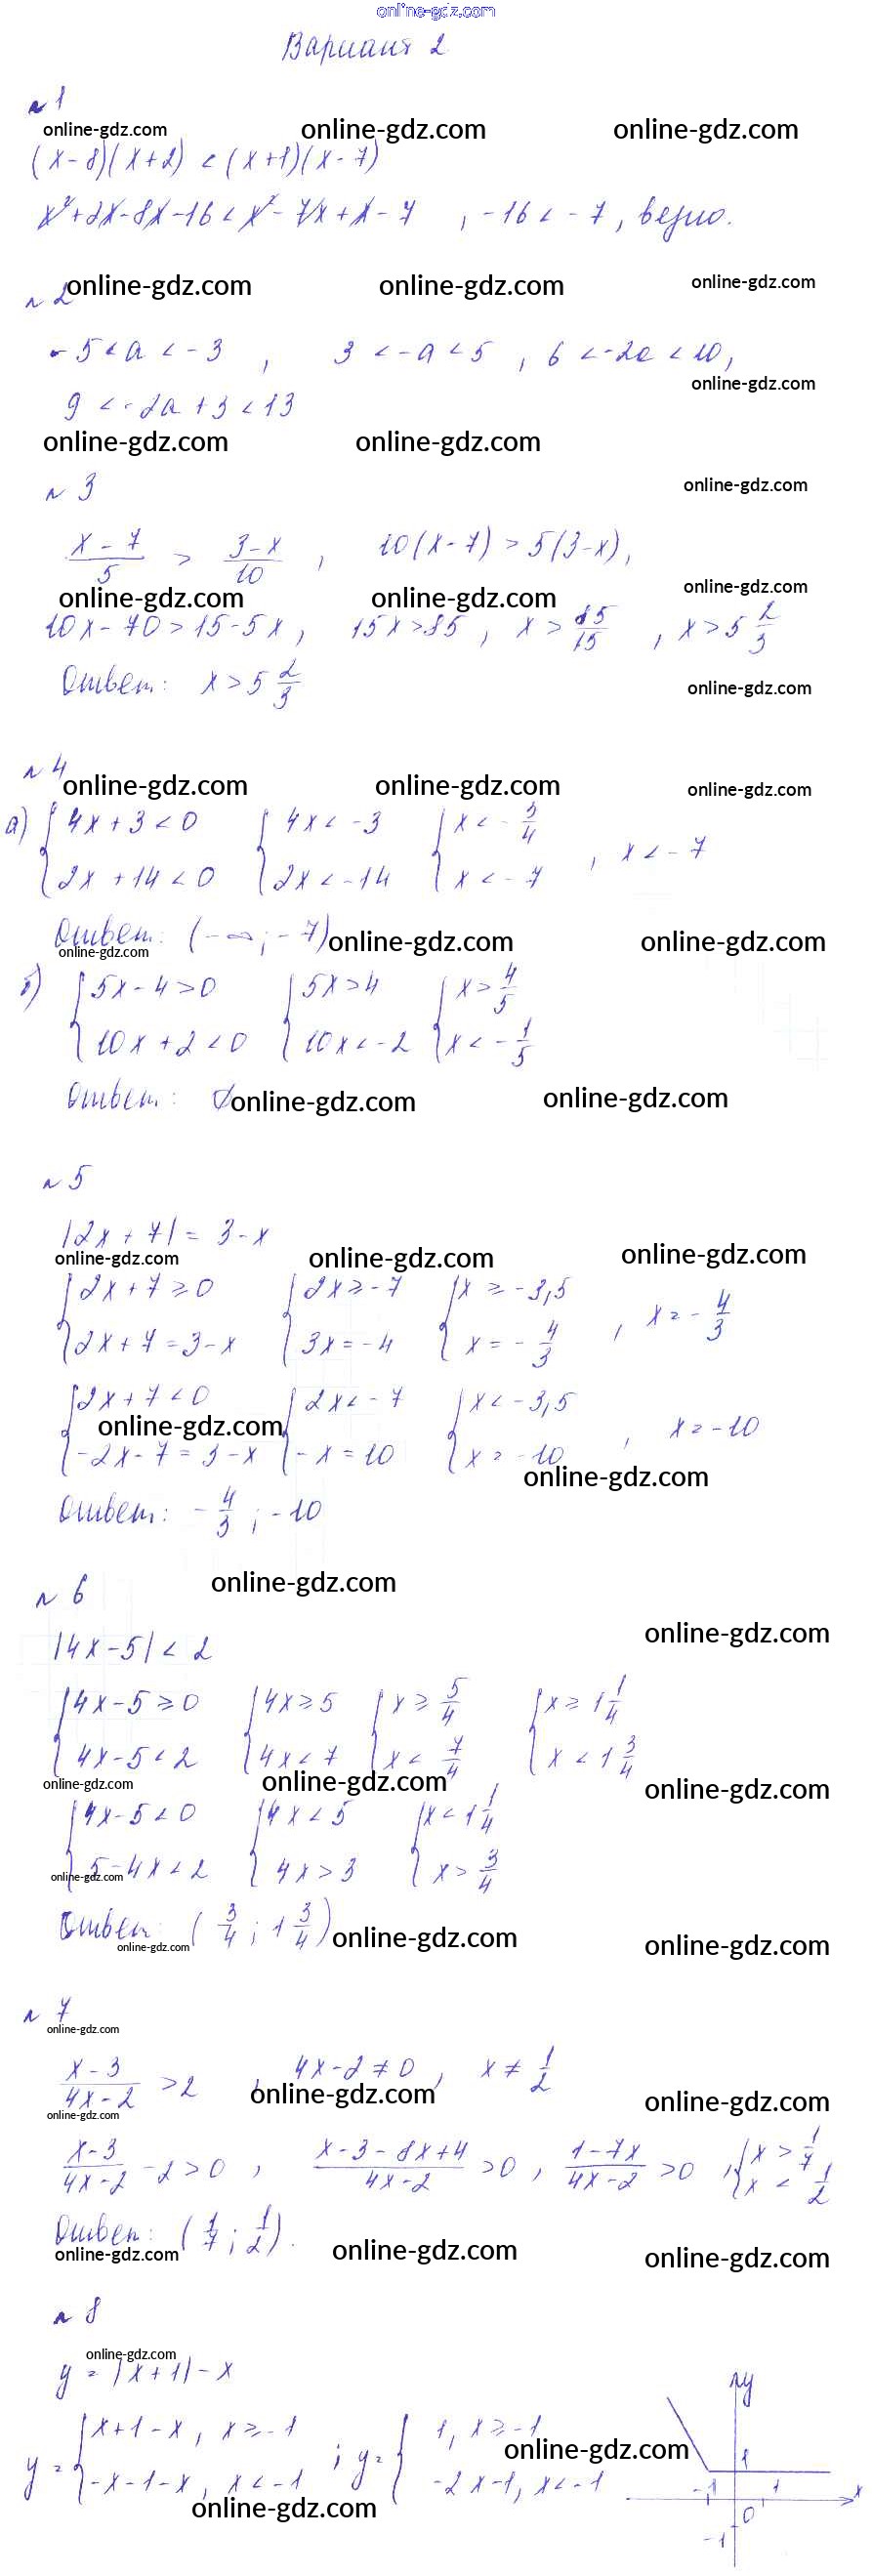 online-gdz.com
Вариант 2
№1
online-gdz.com online-gdz.com online-gdz.com
(x-8)(x+2) < (x+1)(x-7)
x²+2x-8x-16 < x²-7x+x-7 , -16 < -7, верно.
№2
online-gdz.com online-gdz.com online-gdz.com
-5 < a < -3 , 3 < -a < 5 , 6 < -2a < 10,
online-gdz.com
9 < -2a + 3 < 13
online-gdz.com online-gdz.com
№3
online-gdz.com
(x-7)/5 > (3-x)/10 , 10(x-7) > 5(3-x),
online-gdz.com online-gdz.com online-gdz.com
10x-70 > 15-5x, 15x > 85, x > 85/15 , x > 5 2/3
Ответ: x > 5 2/3
online-gdz.com
№4
online-gdz.com online-gdz.com online-gdz.com
а) { 4x+3 < 0 { 4x < -3 { x < -3/4
2x+14 < 0 2x < -14 x < -7 , x < -7
Ответ: (-∞; -7)
online-gdz.com online-gdz.com online-gdz.com
б) { 5x-4 > 0 { 5x > 4 { x > 4/5
10x+2 < 0 10x < -2 x < -1/5
Ответ: ∅
online-gdz.com online-gdz.com
№5
|2x+7| = 3-x
online-gdz.com online-gdz.com online-gdz.com
{ 2x+7 ≥ 0 { 2x ≥ -7 { x ≥ -3,5
2x+7 = 3-x 3x = -4 x = -4/3 , x = -4/3
{ 2x+7 < 0 { 2x < -7 { x < -3,5
online-gdz.com
-2x-7 = 3-x -x = 10 x = -10 , x = -10
online-gdz.com
Ответ: -4/3 ; -10
online-gdz.com
№6
online-gdz.com
|4x-5| < 2
{ 4x-5 ≥ 0 { 4x ≥ 5 { x ≥ 5/4 { x ≥ 1 1/4
4x-5 < 2 4x < 7 x < 7/4 x < 1 3/4
online-gdz.com online-gdz.com online-gdz.com
{ 4x-5 < 0 { 4x < 5 { x < 1 1/4
5-4x < 2 4x > 3 x > 3/4
online-gdz.com
Ответ: (3/4 ; 1 3/4)
online-gdz.com online-gdz.com online-gdz.com
№7
online-gdz.com
(x-3)/(4x-2) > 2 , 4x-2 ≠ 0, x ≠ 1/2
online-gdz.com online-gdz.com online-gdz.com
(x-3)/(4x-2) - 2 > 0 , (x-3-8x+4)/(4x-2) > 0 , (1-7x)/(4x-2) > 0 , { x > 1/7
x < 1/2
Ответ: (1/7 ; 1/2).
online-gdz.com online-gdz.com online-gdz.com
№8
online-gdz.com
y = |x+1| - x
y = { x+1-x, x ≥ -1 ; y = { 1, x ≥ -1
-x-1-x, x < -1 -2x-1, x < -1
online-gdz.com
online-gdz.com
y
1
-1 1 x
0
-1